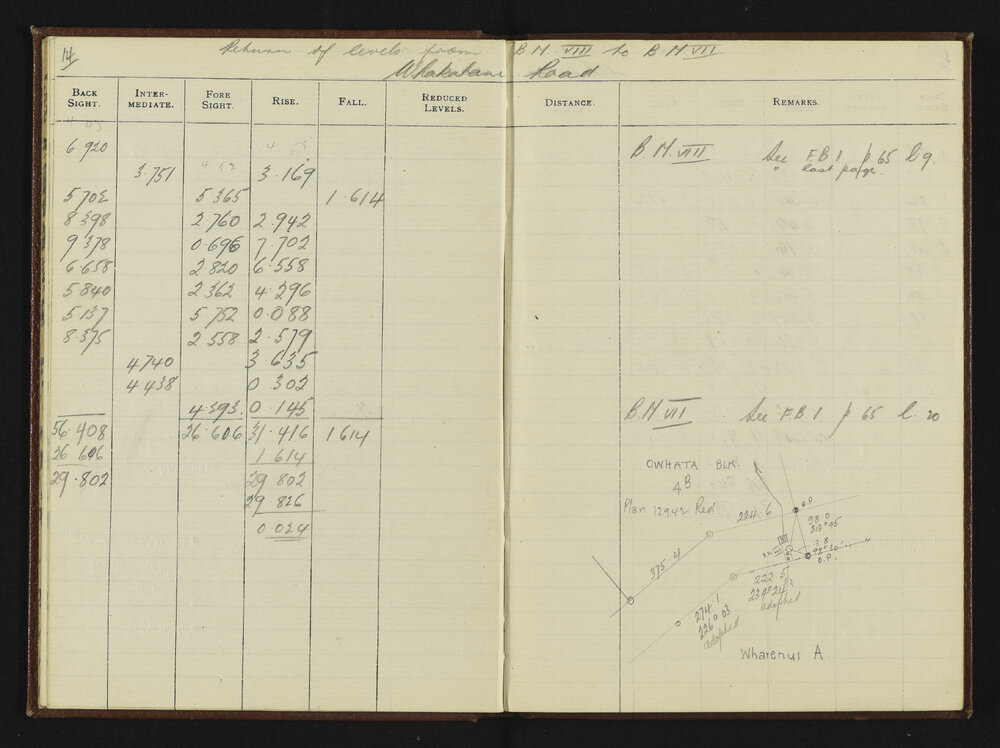 14
Return of levels from B.M. VIII to B.M VII
Whakatane Road
BACK SIGHT. INTER-MEDIATE. FORE SIGHT. RISE. FALL. REDUCED LEVELS. DISTANCE. REMARKS.
6 920 B.M. VIII See F.B.1 p 65 l 9.
3.751 3.169 " last page.
5 702 5 365 1.614
8 398 2 760 2 942
9 378 0.696 7 702
6 658 2 820 6 558
5 840 2 362 4.296
5 137 5 752 0 088
8.375 2 558 2.579
4 740 3 635
4 438 0 302
4 393 0 145 B.M. VII See F.B 1 p 65 l. 20
56.408 26.606 31.416 1 614
26 606 1 614
29.802 29 802
29 826
0 024
OWHATA BLK.
4B
Plan 12942 Red
224.6
O.P.
98 0
313° 45
375 4
VII
B.M
13 8
42° 30'
O.P.
222 5
234° 24
adopted
274 1
226 0 03
adopted
Wharenui A